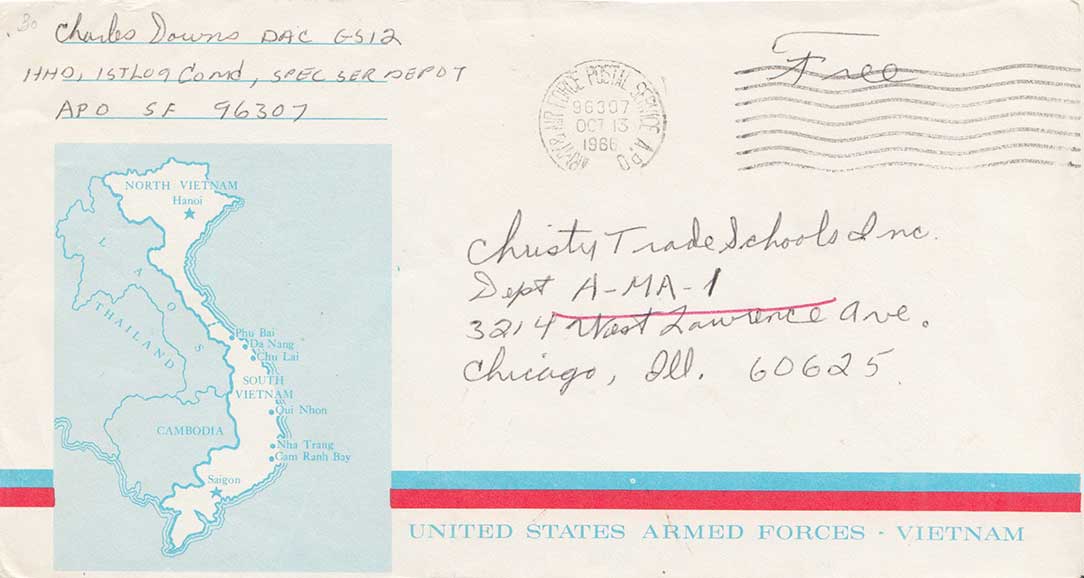 30
Charles Downs DAC GS12
HHD, 1ST LOG Comd, SPEC SER DEPOT
APO SF 96307
ARMY & AIR FORCE POSTAL SERVICE APO
96307
OCT 13
1966
Free
Christy Trade Schools Inc.
Dept A-MA-1
3214 West Lawrence Ave.
Chicago, Ill. 60625
NORTH VIETNAM
Hanoi
LAOS
THAILAND
Phu Bai
Da Nang
Chu Lai
SOUTH
VIETNAM
Qui Nhon
CAMBODIA
Nha Trang
Cam Ranh Bay
Saigon
UNITED STATES ARMED FORCES - VIETNAM